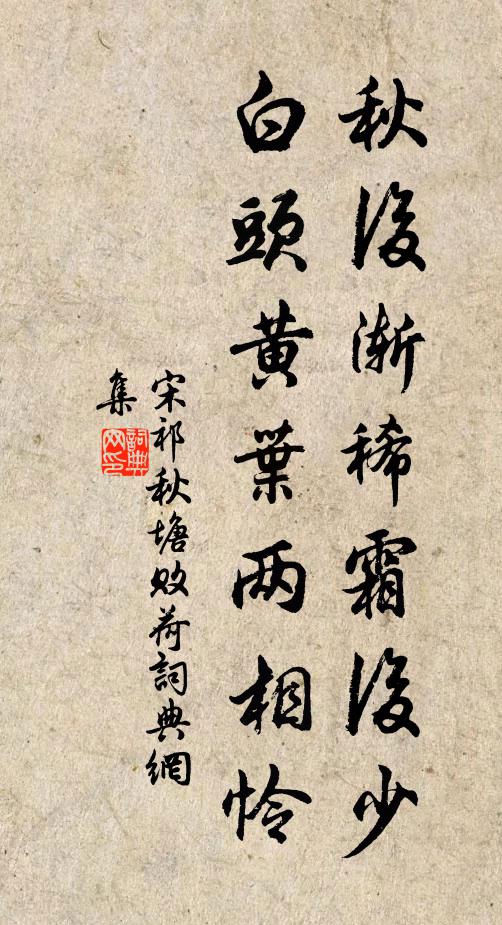 秋後漸稀霜後少
白頭黃葉兩相憐
宋祁秋塘敗荷詞典網
集
詞典網印